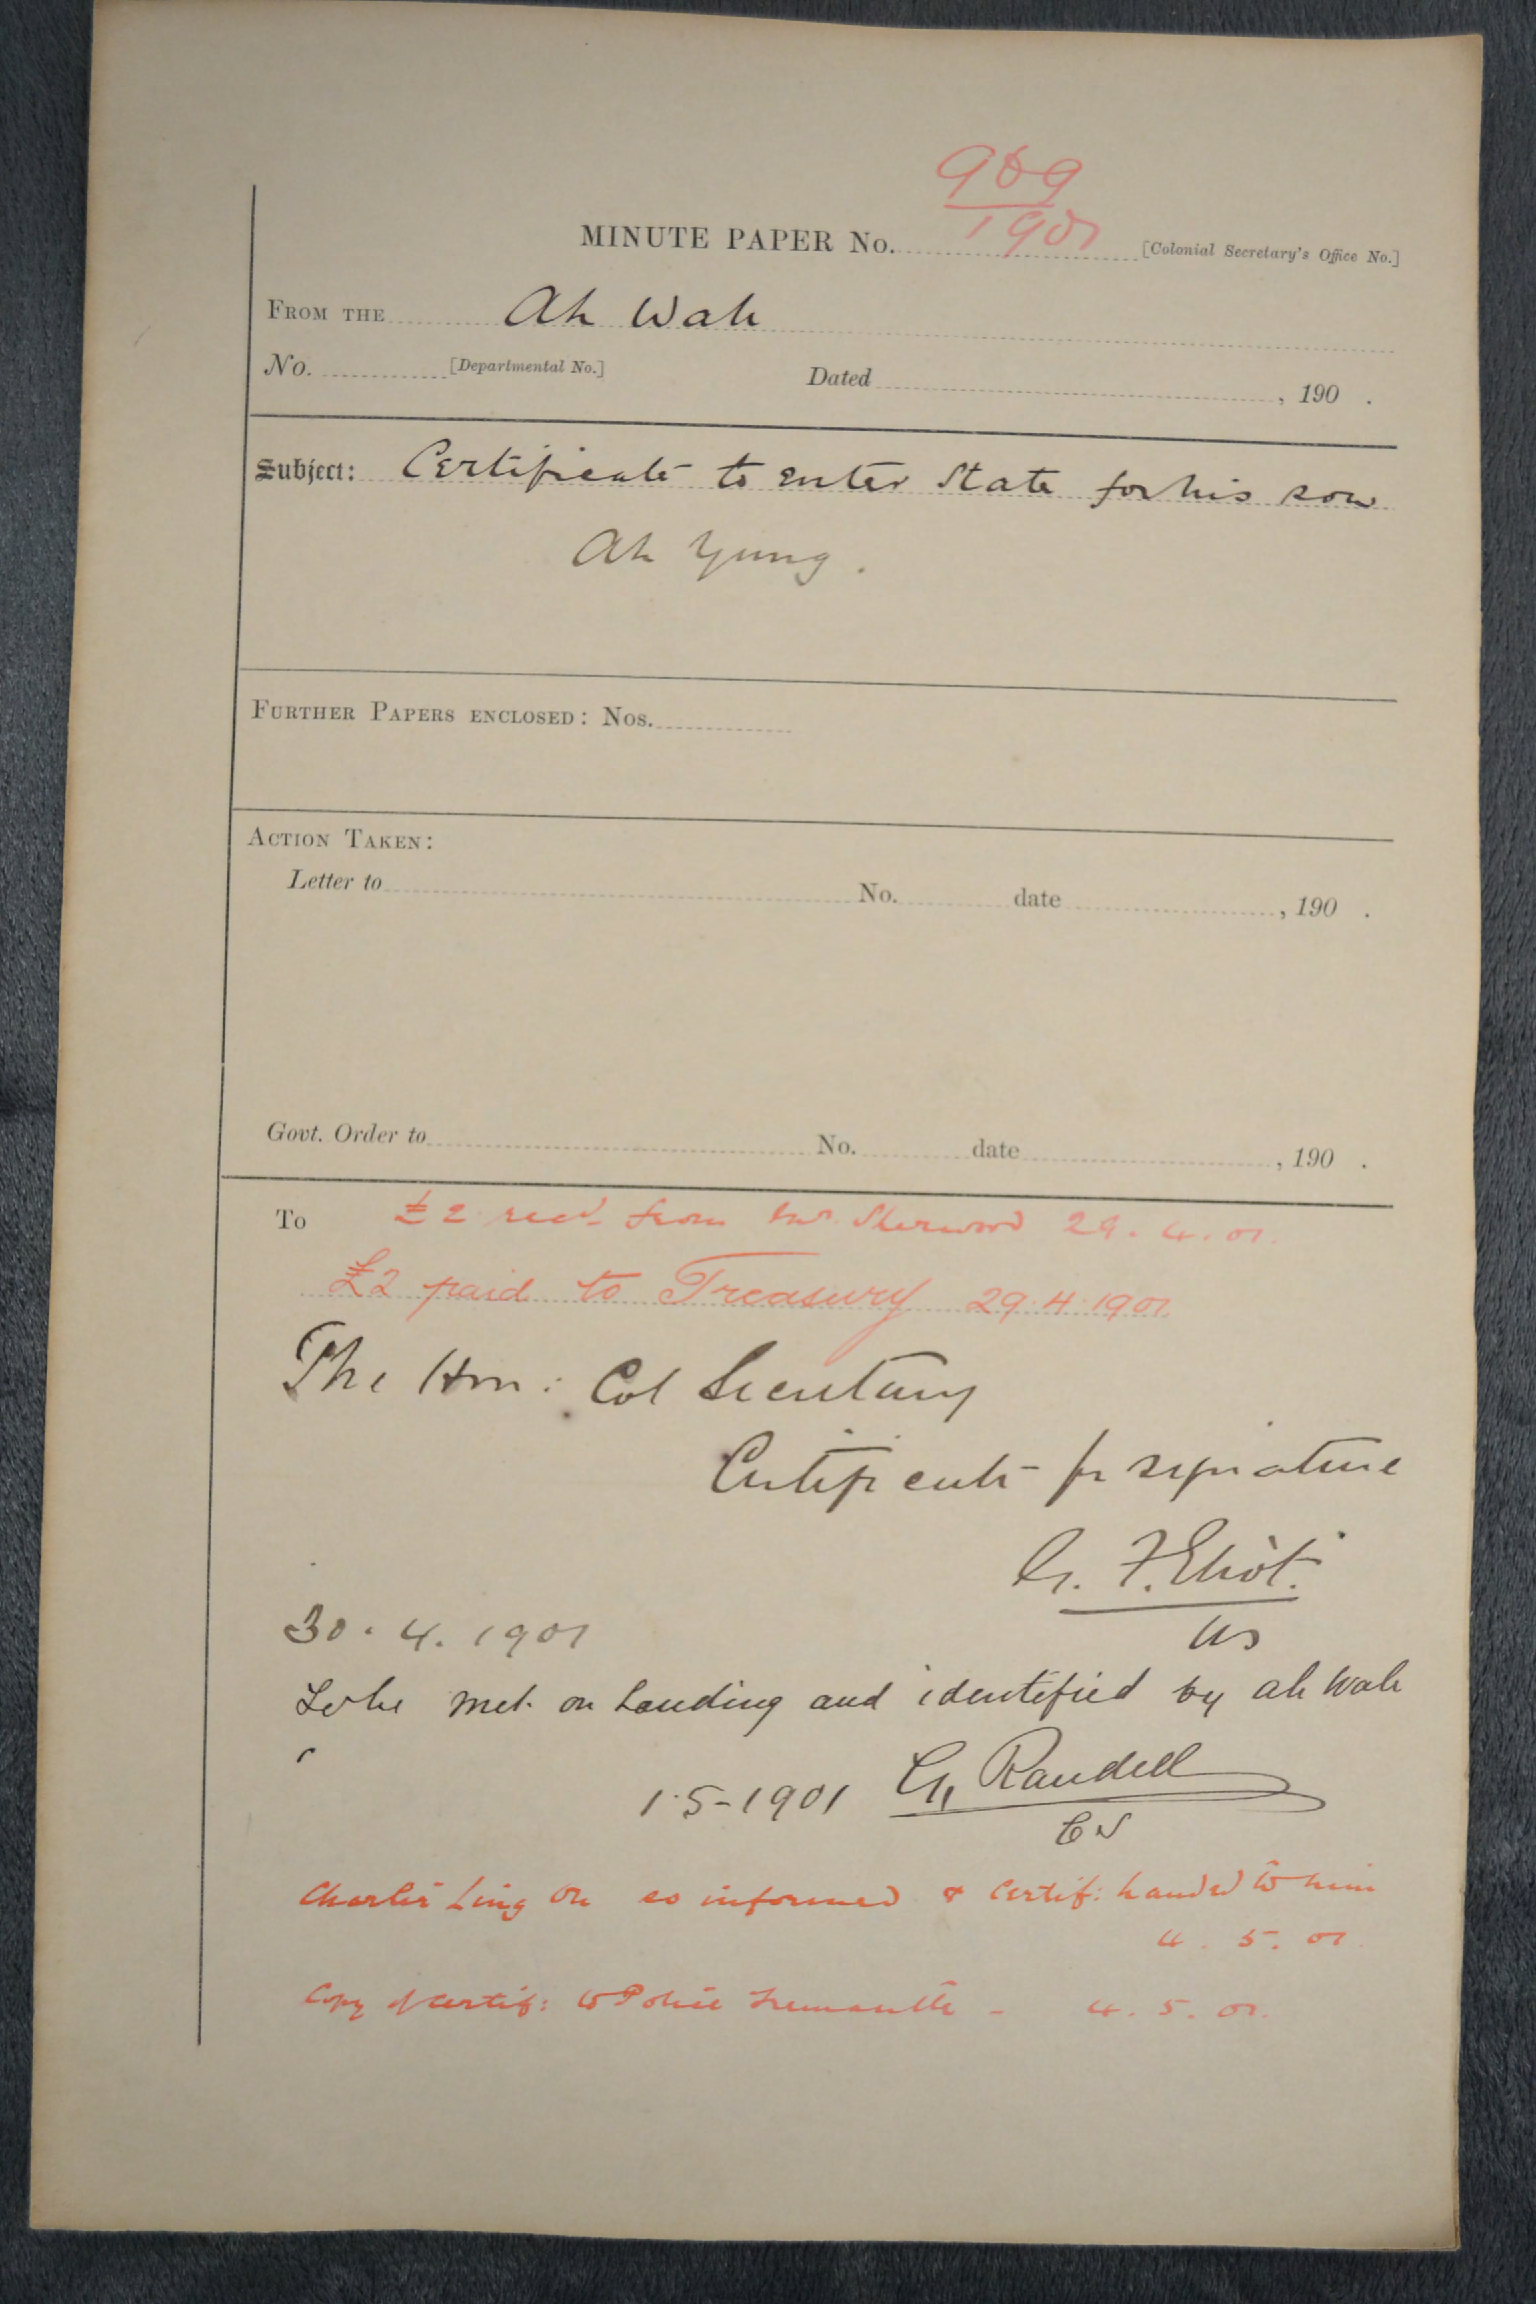 909
1901
MINUTE PAPER No. [Colonial Secretary's Office No.]
FROM THE Ah Wah
No. [Departmental No.] Dated , 190 .
Subject: Certificate to enter State for his son
Ah Yung.
FURTHER PAPERS ENCLOSED: Nos.
ACTION TAKEN:
Letter to No. date , 190 .
Govt. Order to No. date , 190 .
To £2 recd from Mr. Sherwood 29.4.01.
£2 paid to Treasury 29.4.1901.
The Hon: Col Secretary
Certificate for signature
G. F. Eliot.
US
30.4.1901
To be met on landing and identified by Ah Wah
1.5-1901 G. Randell
CS
Charlie Ling On so informed & certif: handed to him
4.5.01
Copy of certif: to Police Fremantle - 4.5.01.